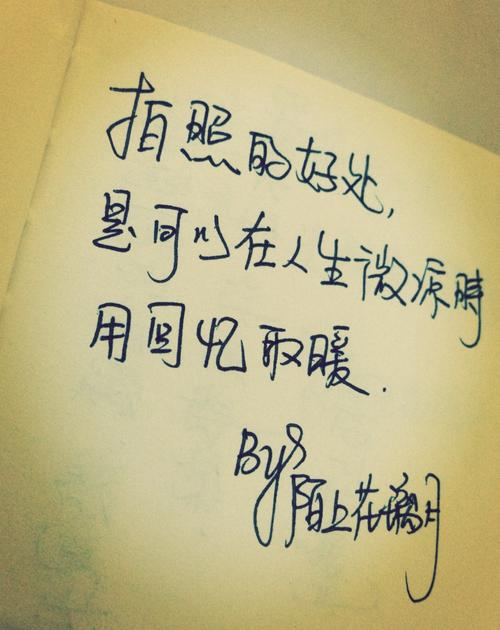 拍照的好处,
是可以在人生微凉时
用回忆取暖.
By 陌上花